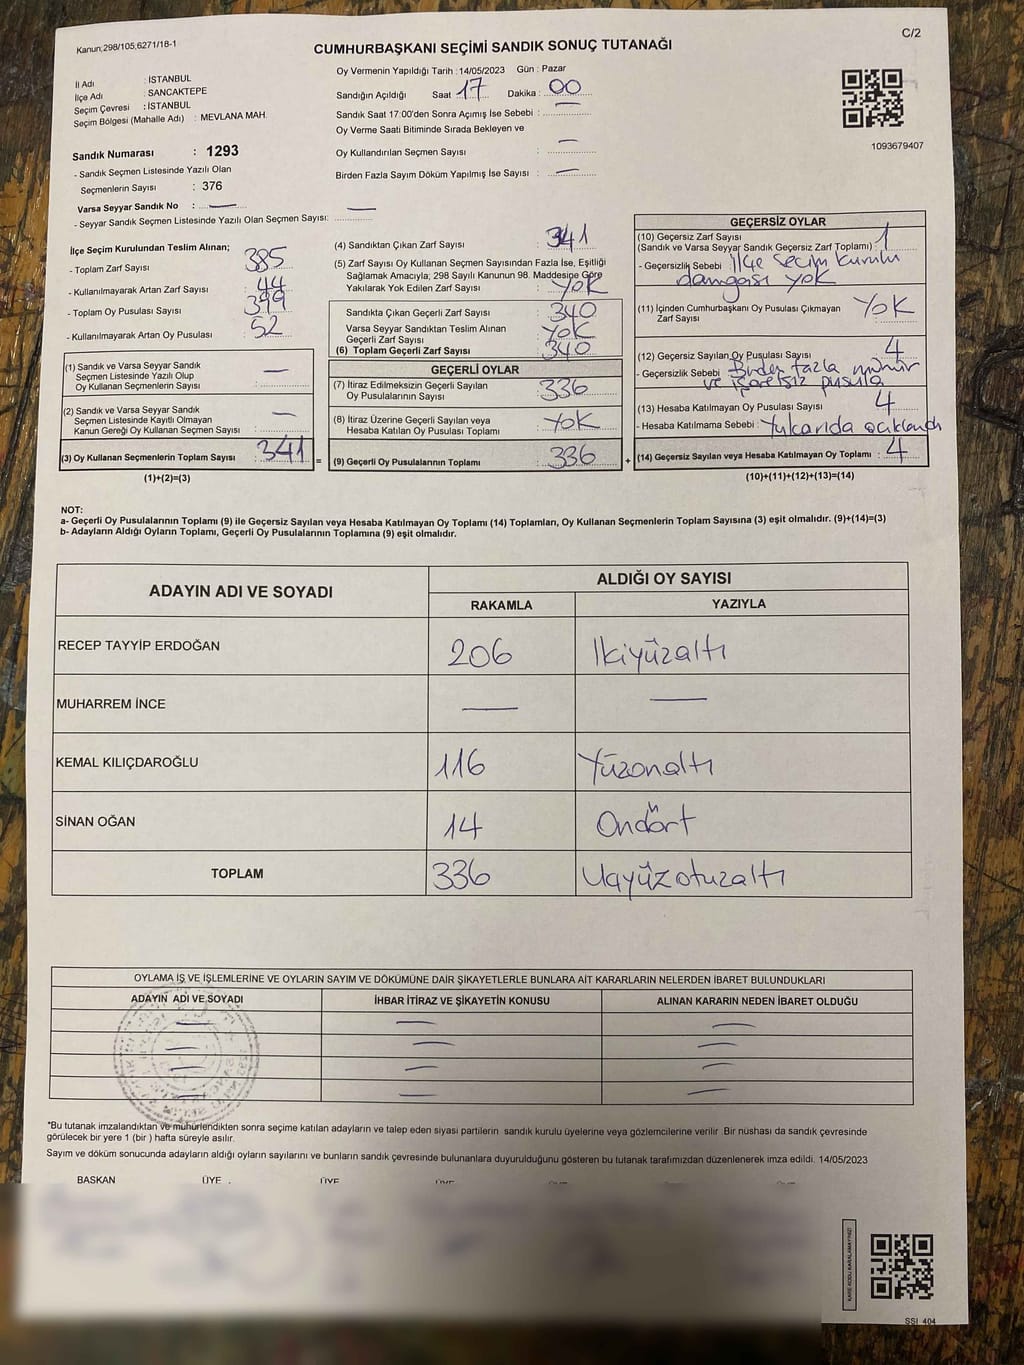 Kanun;298/105;6271/18-1
C/2
CUMHURBAŞKANI SEÇİMİ SANDIK SONUÇ TUTANAĞI
İl Adı : İSTANBUL
İlçe Adı : SANCAKTEPE
Seçim Çevresi : İSTANBUL
Seçim Bölgesi (Mahalle Adı) : MEVLANA MAH.
Sandık Numarası : 1293
- Sandık Seçmen Listesinde Yazılı Olan
Seçmenlerin Sayısı : 376
Varsa Seyyar Sandık No : —
- Seyyar Sandık Seçmen Listesinde Yazılı Olan Seçmen Sayısı: —
Oy Vermenin Yapıldığı Tarih : 14/05/2023 Gün : Pazar
Sandığın Açıldığı Saat : 17 Dakika : 00
Sandık Saat 17:00'den Sonra Açımış İse Sebebi : —
Oy Verme Saati Bitiminde Sırada Bekleyen ve
Oy Kullandırılan Seçmen Sayısı : —
Birden Fazla Sayım Döküm Yapılmış İse Sayısı : —
1093679407
İlçe Seçim Kurulundan Teslim Alınan;
- Toplam Zarf Sayısı : 385
- Kullanılmayarak Artan Zarf Sayısı : 44
- Toplam Oy Pusulası Sayısı : 399
- Kullanılmayarak Artan Oy Pusulası : 52
(1) Sandık ve Varsa Seyyar Sandık
Seçmen Listesinde Yazılı Olup
Oy Kullanan Seçmenlerin Sayısı : —
(2) Sandık ve Varsa Seyyar Sandık
Seçmen Listesinde Kayıtlı Olmayan
Kanun Gereği Oy Kullanan Seçmen Sayısı : —
(3) Oy Kullanan Seçmenlerin Toplam Sayısı : 341 =
(1)+(2)=(3)
(4) Sandıktan Çıkan Zarf Sayısı : 341
(5) Zarf Sayısı Oy Kullanan Seçmen Sayısından Fazla İse, Eşitliği
Sağlamak Amacıyla; 298 Sayılı Kanunun 98. Maddesine Göre
Yakılarak Yok Edilen Zarf Sayısı : YOK
Sandıkta Çıkan Geçerli Zarf Sayısı : 340
Varsa Seyyar Sandıktan Teslim Alınan
Geçerli Zarf Sayısı : YOK
(6) Toplam Geçerli Zarf Sayısı : 340
GEÇERLİ OYLAR
(7) İtiraz Edilmeksizin Geçerli Sayılan
Oy Pusulasının Sayısı : 336
(8) İtiraz Üzerine Geçerli Sayılan veya
Hesaba Katılan Oy Pusulası Toplamı : YOK
(9) Geçerli Oy Pusulalarının Toplamı : 336 +
GEÇERSİZ OYLAR
(10) Geçersiz Zarf Sayısı
(Sandık ve Varsa Seyyar Sandık Geçersiz Zarf Toplamı) : 1
- Geçersizlik Sebebi : İlçe Seçim kurulu
damgası yok
(11) İçinden Cumhurbaşkanı Oy Pusulası Çıkmayan
Zarf Sayısı : YOK
(12) Geçersiz Sayılan Oy Pusulası Sayısı : 4
- Geçersizlik Sebebi : Birden fazla mühür
ve işaretsiz pusula
(13) Hesaba Katılmayan Oy Pusulası Sayısı : 4
- Hesaba Katılmama Sebebi : Yukarıda açıklandı
(14) Geçersiz Sayılan veya Hesaba Katılmayan Oy Toplamı : 4
(10)+(11)+(12)+(13)=(14)
NOT:
a- Geçerli Oy Pusulalarının Toplamı (9) ile Geçersiz Sayılan veya Hesaba Katılmayan Oy Toplamı (14) Toplamları, Oy Kullanan Seçmenlerin Toplam Sayısına (3) eşit olmalıdır. (9)+(14)=(3)
b- Adayların Aldığı Oyların Toplamı, Geçerli Oy Pusulalarının Toplamına (9) eşit olmalıdır.
ADAYIN ADI VE SOYADI ALDIĞI OY SAYISI
RAKAMLA YAZIYLA
RECEP TAYYİP ERDOĞAN 206 İkiyüzaltı
MUHARREM İNCE — —
KEMAL KILIÇDAROĞLU 116 Yüzonaltı
SİNAN OĞAN 14 Ondört
TOPLAM 336 Üçyüzotuzaltı
OYLAMA İŞ VE İŞLEMLERİNE VE OYLARIN SAYIM VE DÖKÜMÜNE DAİR ŞİKAYETLERLE BUNLARA AİT KARARLARIN NELERDEN İBARET BULUNDUKLARI
ADAYIN ADI VE SOYADI İHBAR İTİRAZ VE ŞİKAYETİN KONUSU ALINAN KARARIN NEDEN İBARET OLDUĞU
— — —
— — —
— — —
— — —
*Bu tutanak imzalandıktan ve mühürlendikten sonra seçime katılan adayların ve talep eden siyasi partilerin sandık kurulu üyelerine veya gözlemcilerine verilir .Bir nüshası da sandık çevresinde
görülecek bir yere 1 (bir ) hafta süreyle asılır.
Sayım ve döküm sonucunda adayların aldığı oyların sayılarını ve bunların sandık çevresinde bulunanlara duyurulduğunu gösteren bu tutanak tarafımızdan düzenlenerek imza edildi. 14/05/2023
BAŞKAN ÜYE ÜYE
KARE KODU KARALAMAYINIZ!
SSI_404